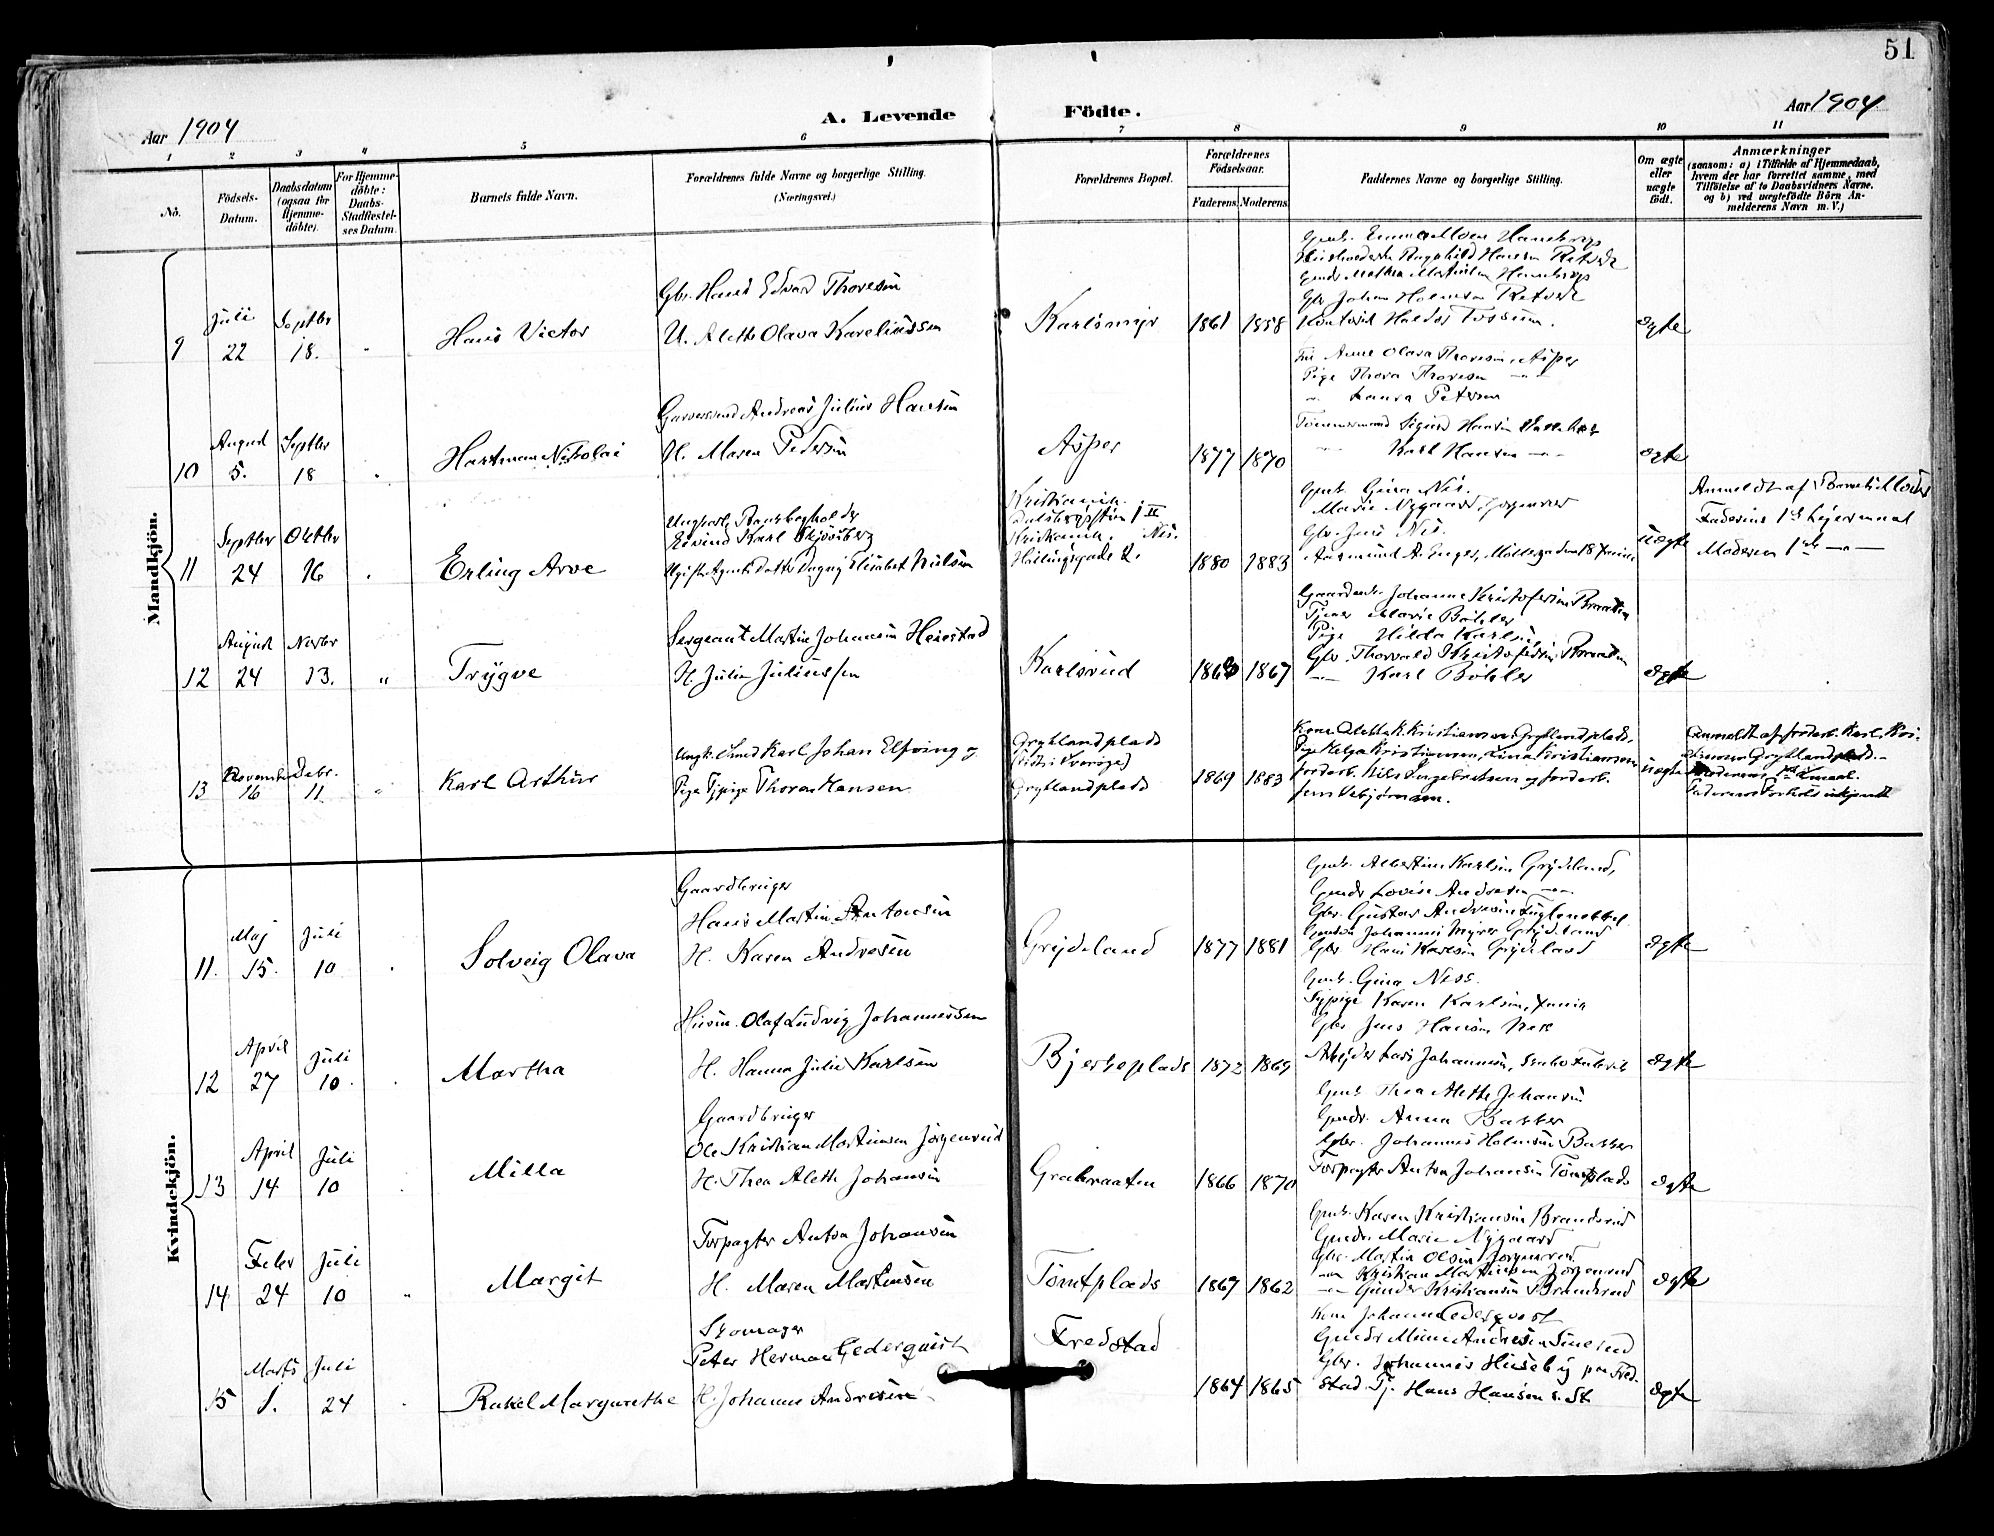 51
Aar 1904
A. Levende Födte.
Aar 1904
1 2 3 4 5 6 7 8 9 10 11
No.
Födsels-Datum.
Daabsdatum (ogsaa for Hjemme-döbte).
For Hjemme-döbte: Daabs-Stadfæstel-ses Datum.
Barnets fulde Navn.
Forældrenes fulde Navne og borgerlige Stilling.
(Næringsvei.)
Forældrenes Bopæl.
Forældrenes Födselsaar.
Faderens. Moderens.
Faddernes Navne og borgerlige Stilling.
Om ægte eller uægte födt.
Anmærkninger
(saasom: a) i Tilfælde af Hjemmedaab, hvem der har forrettet samme, med Tilföielse af to Daabsvidners Navne, og b) ved uægtefödte Börn An-melderens Navn m. V.)
Mandkjön.
9
Juli 22
Septbr 18.
Hans Victor
Gbr. Hans Edvard Thoresen
H. Alette Olava Karelinssen
Karlsmyr
1861 1858
Johan Holmsen
Anne Olava Thoresen, Asper
Pige Thora Thoresen
Laura Petersen
ægte
10
August 5.
Septbr 18
Hartman Nikolai
Andreas Julius Hansen
H. Maren Pedersen
Asper
1877 1870
Tømmermand Sigurd Hansen
Karl Hansen
ægte
11
Septbr 24
Oktbr 16
Erling Arve
Eivind Karl
Elisabet Nielsen
Kristiania.
Kristiania.
1880 1883
Gmk. Gina Nes.
Marie Nygaard, Jørgenrud
Gbr. Jens Nes.
uægte
Anmeldt af Barnets Moder
Faderens 1ste Leiermaal
Moderen 1ste
12
August 24
Novbr 13.
Trygve
Sergeant Martin Johansen Heiestad
H. Julie Juliussen
Karlsrud
1868 1867
Johanne Kristofersen Braaten
Tjener Marie Böhler
Pige Hilda Karlsen
Gbr. Thorvald Kristofersen, Braaten
Karl Böhler
ægte
13
November 16
Decbr. 11
Karl Arthur
Ungk. Smed Karl Johan Elfving og
Pige Tjpige Thora Hansen
Gryklandplads
Gryklandplads
1869 1883
Kone Alette K. Kristiansen, Gryklandplads,
Pige Helga Kristiansen, Lina Kristiansen
Jordarb. Nils Ingebretsen og Jordarb.
Jens Vebjørnsen.
uægte
Anmeldt af Jordarb. Karl Kri-
stiansen Gryklandplads.
Kvindekjön.
11.
Maj 15.
Juli 10
Solveig Olava
Gaardbruger
Hans Martin Antonsen
H. Karen Andresen
Grydeland
1877 1881
Gmk. Albertine Karlsen Grydeland,
Gmdr Lovise Andresen
Gbr. Gustav Andresen Fuglenebbel
Johannes Myrer Grydeland
Gbr Hans Karlsen Grydeland
ægte
12
April 27
Juli 10.
Martha
Husm. Olaf Ludvig Johannessen
H. Hanna Julie Karlsen
Bjerkeplads
1872 1869
Gmk. Gina Ness.
Tjpige Karen Karlsen,
Gbr Jens Hansen Nes
Arbejder Lars Johannesen,
ægte
13
April 14
Juli 10
Milla
Gaardbruger
Ole Kristian Martinsen Jørgenrud
H. Thea Alette Johansen
Graabraaten
1866 1870
Gmk Thea Alette Johansen
Gmdr. Anna Bakker
Gbr. Johannes Holmsen Bakker
Forpagter Anton Johansen Tomtplads
ægte
14
Febr 24
Juli 10
Margit
Forpagter Anton Johansen
H. Maren Martinsen
Tomtplads
1867 1862
Gmk. Karen Kristiansen Brandsrud
Gmdr. Marie Nygaard
Gbr. Martin Olsen Jørgenrud
Kristian Martinsen Jørgenrud
Gunder Kristiansen Brandsrud
ægte
15
Marts 1.
Juli 24
Rakel Margarethe
Skomager
Peter Herman Cederquist
H. Johanne Andresen
Fredstad
1864 1865
Kone Johanne Cederqvist
Gmdr Mina Andresen
Gbr. Johannes Huseby paa Fred-
stad Tj. Hans Hansen s. St
ægte